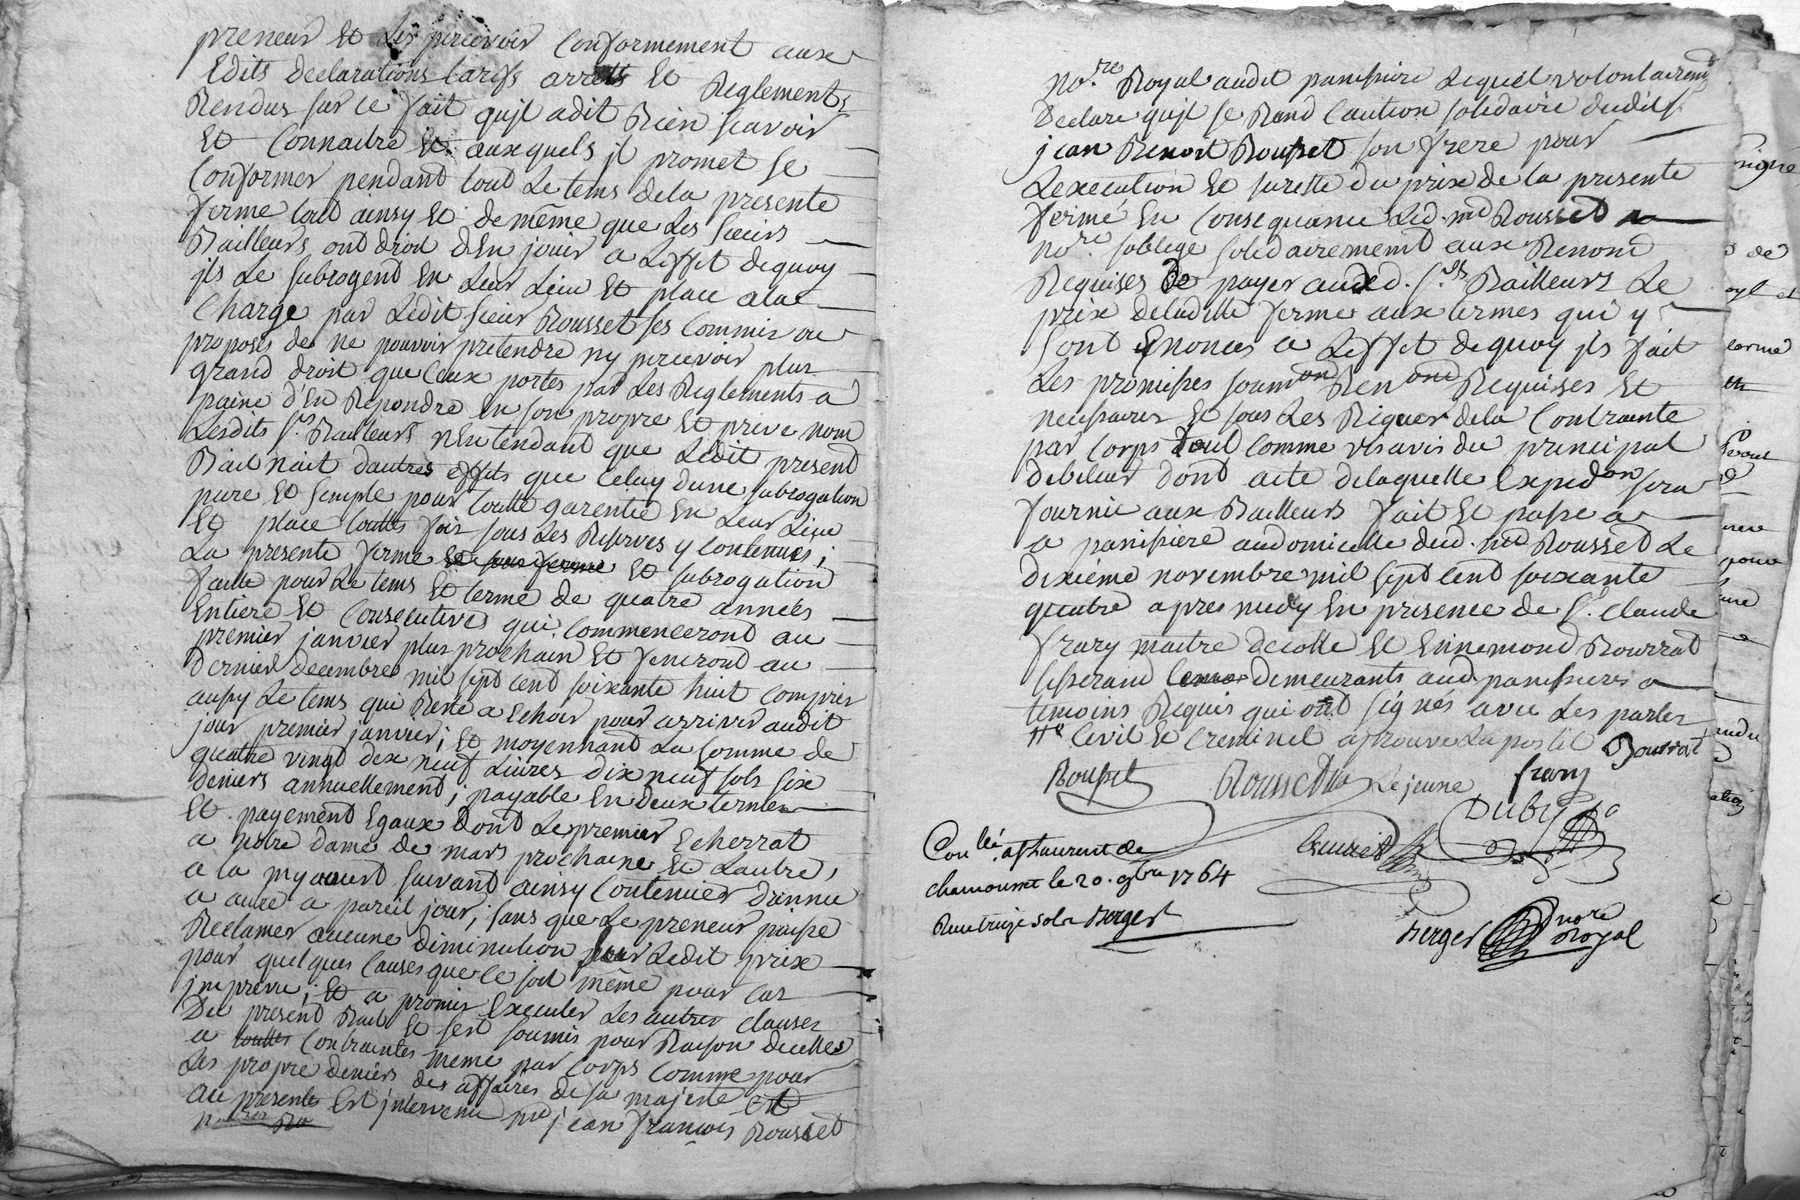 preneur et Les percevoir Conformement aux
Edits declarations tarifs arrets et Reglements
Rendus sur ce fait qu'jl adit Rien scavoir
et Connaitre et auxquels jl promet se
Conformer pendant tout Le tems dela presente
ferme tout ainsy et de même que Les sieurs
Bailleurs ont droit d'En jouir a L'effet dequoy
jls Le subrogent En Leur Lieu et place ala
Charge par Ledit sieur Rousset ses Commis ou
proposés de ne pouvoir pretendre ny percevoir plus
grand droit que Ceux portés par Les Reglements a
paine d'En Repondre En son propre et privé nom
Lesdits Srs Bailleurs n'Entendant que Ledit present
Bail n'ait d'autres effets que Celuy d'une subrogation
pure et semple pour toutte garentie En Leur Lieu
et place touttes fois sous Les Reserves y Contenues;
La presente ferme et sous ferme et subrogation
faitte pour Le tems et terme de quatre années
Entiere et Consecutives qui Commenceront au
premier janvier plus prochain et finiront au
dernier decembre mil sept cent soixante huit compris
aussy Le tems qui Reste a Echoir pour arriver audit
jour premier janvier; et moyennant La somme de
quatre vingt dix neuf Livres dix neuf sols six
deniers annuellement; payable En deux termes
et payement Egaux dont Le premier Echerrat
a notre dame de mars prochaine et L'autre
a la my aoust suivant ainsy Continuer d'année
a autre a pareil jour; sans que Le preneur puisse
Reclamer aucune diminution sur Ledit prix
pour quelques Causes que ce soit même pour Cas
jmprevu; et a promis Executer Les autres clauses
Du present Bail et s'est soumis pour Raison d'icelles
a touttes Contraintes meme par Corps Comme pour
Les propre deniers des affaires de sa majesté et
au presente Est jntervenu me jean francois Rousset
nore Royal audit panissiere Lequel volontairemt
Declare qu'jl se Rend Caution solidaire dudit sr
jean Benoit Rousset son frere pour
L'execution et surette du prix de la presente
fermé En Consequance Led. me Rousset
nore s'oblege solidairement aux Renond
Requises de payer auxd. srs Bailleurs Le
prix deladitte ferme aux termes qui y
sont Enoncés a L'effet dequoy jls fait
Les promisses soumon Renond Requises et
necessaires et sous Les Riguer dela Contrainte
par Corps tout comme vis avis du principal
debiteur dont acte delaquelle Expedon sera
fournie aux Bailleurs fait et passé a
a panissiere audomicille dud. me Rousset Le
dixiéme novembre mil sept cent soixante
quatre apres midy En presence de sr. Claude
frary maitre d'ecolle et Ennemond Bourrat
tisserand demeurants aud. panissieres
temoins Requis qui ont signés avec Les parties
tte Civil et Creminel aprouve La postil Bourrat
Rousset Rousset Le jeune frary
Duby
Conllé. a St Laurent de
chamousset le 20. 9bre 1764
Reçu treize sols Berger
Berger nore
Royal